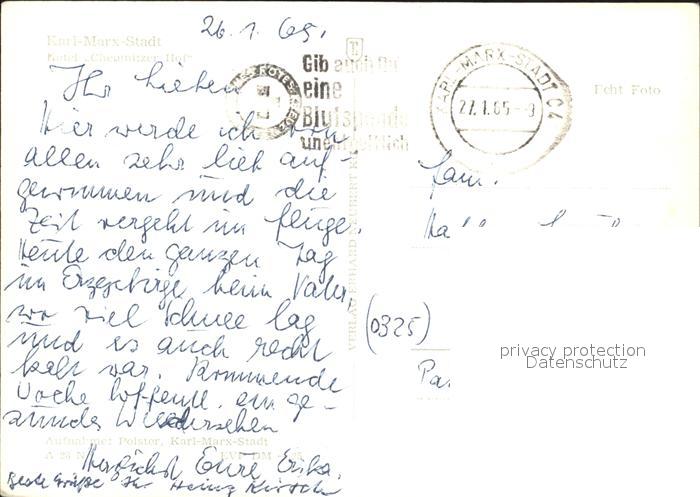 26.1.65.
Karl-Marx-Stadt
Hotel „Chemnitzer Hof"
Ihr Lieben
Hier werde ich von
allen sehr lieb auf-
genommen und die
Zeit vergeht im Fluge.
Heute den ganzen Tag
im Erzgebirge beim Vater,
wo viel Schnee lag
und es auch recht
kalt war. Kommende
Woche hoffentl. ein ge-
sundes Wiedersehen
Aufnahme: Polster, Karl-Marx-Stadt
Herzlichst Eure Erika.
Beste Grüße Ihr Heinz Kirsch
Gib auch du
eine
Blutspende
unentgeltlich
KARL-MARX-STADT C4
27.1.65-9
Echt Foto
VERLAG ERHARD NEUBERT K
Fam.
(0325)
privacy protection
Datenschutz